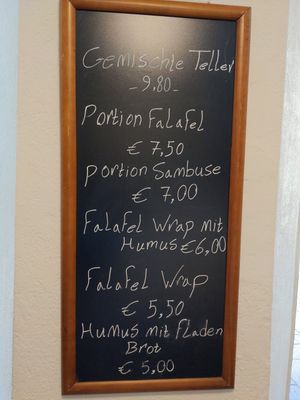 Gemischte Teller
- 9.80 -
Portion Falafel
€ 7,50
Portion Sambuse
€ 7,00
Falafel Wrap mit
Humus € 6,00
Falafel Wrap
€ 5,50
Humus mit Fladen
Brot
€ 5.00